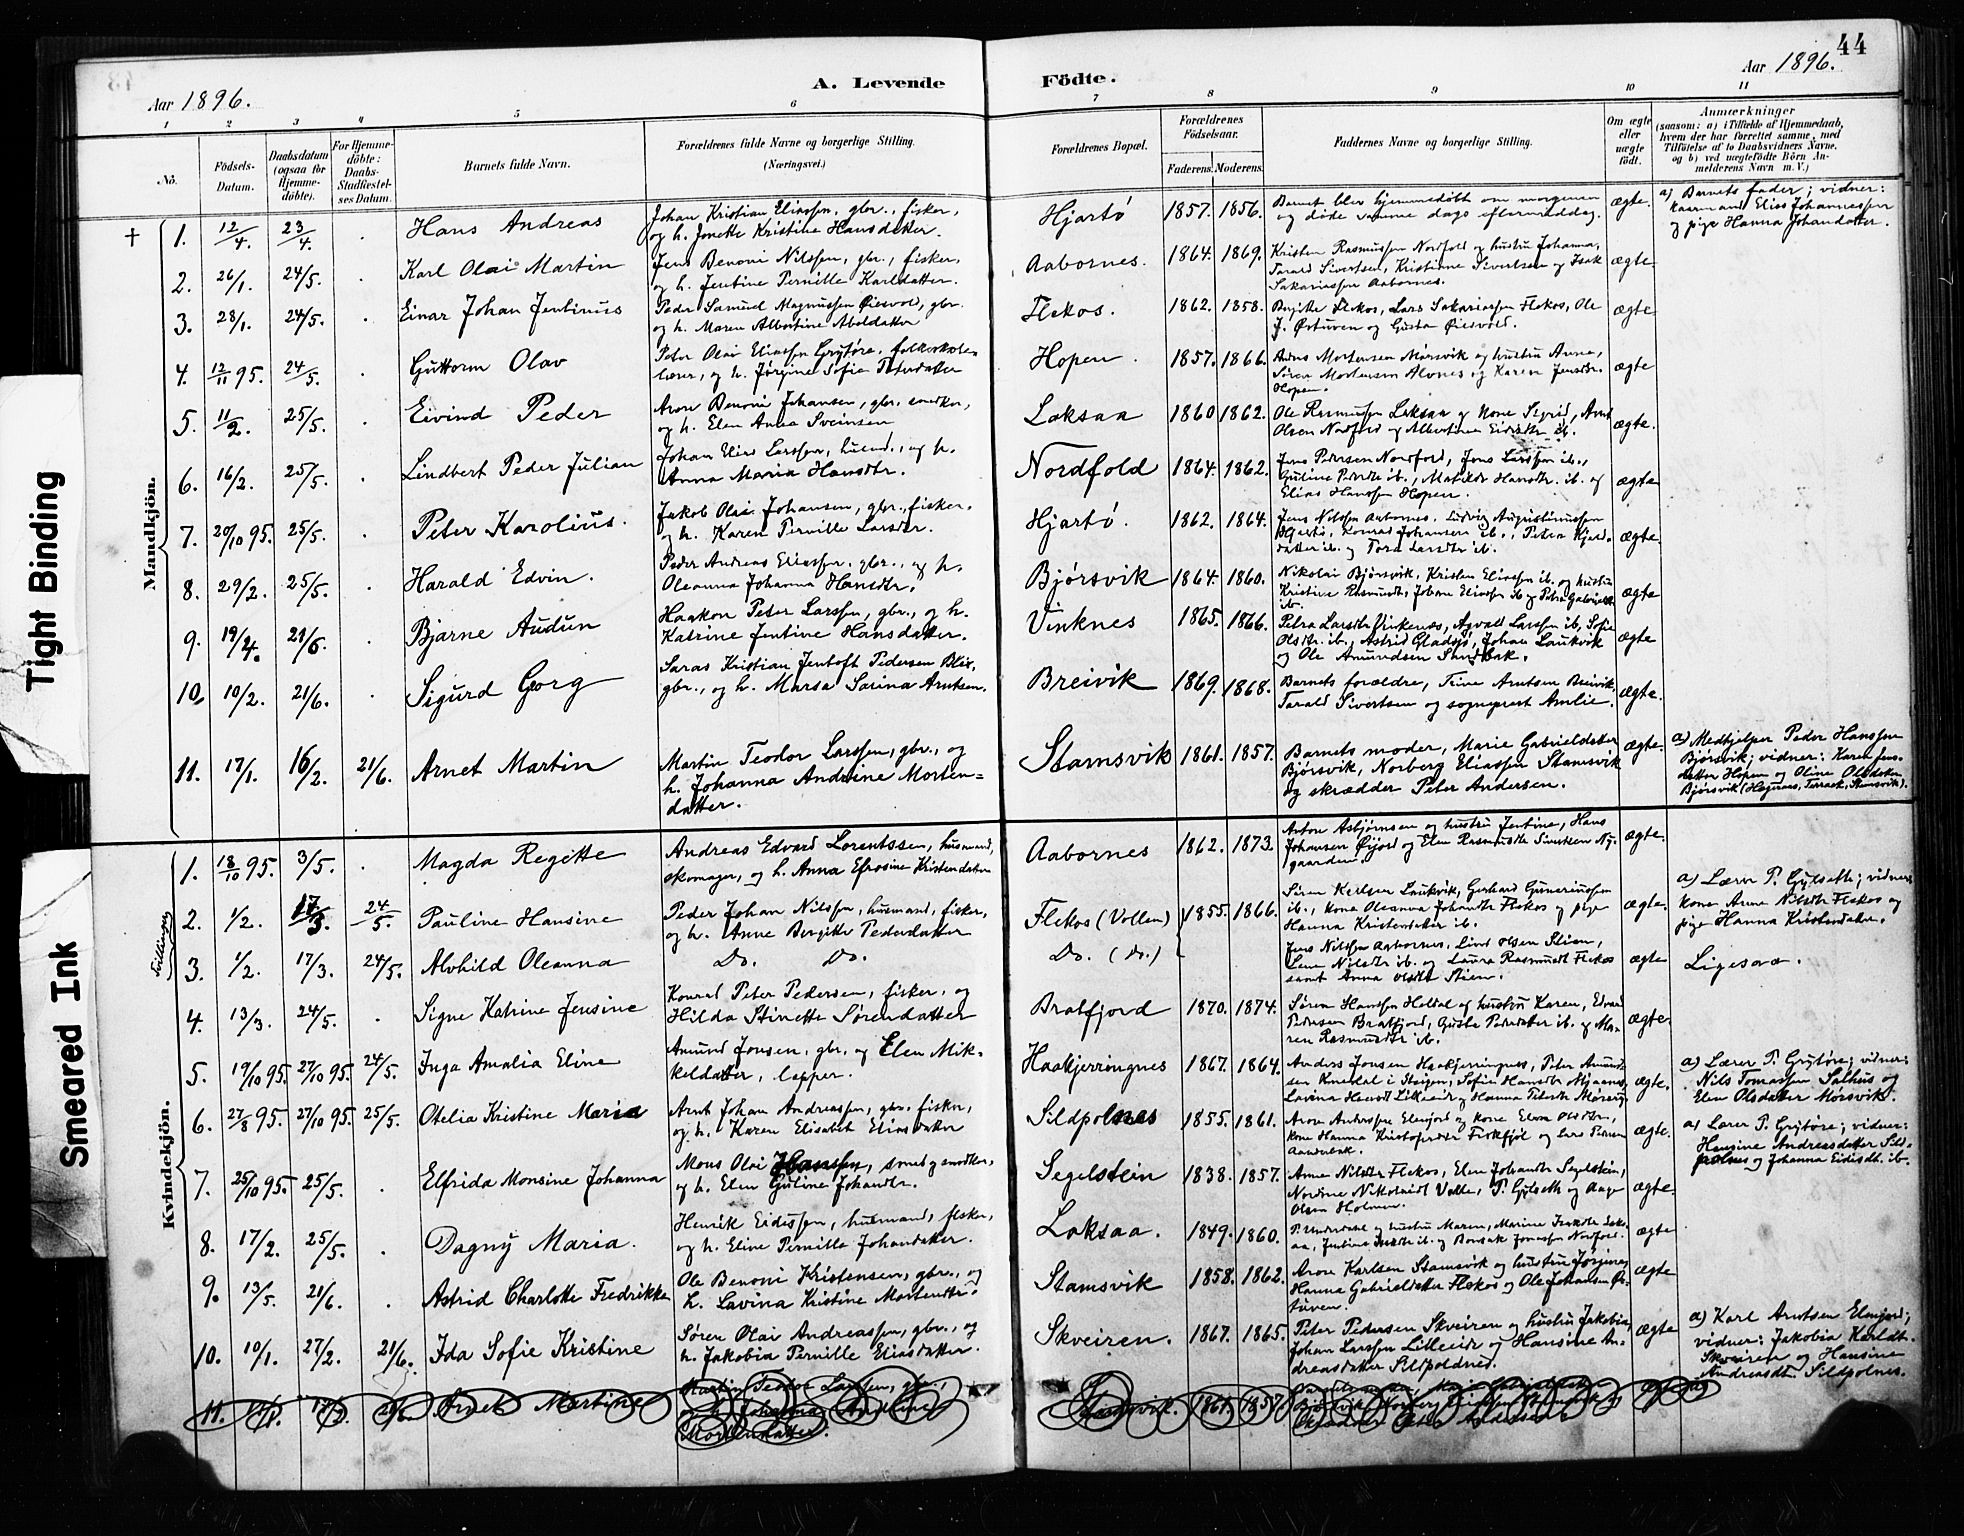 44
Aar 1896.
A. Levende Födte.
Aar 1896.
1 2 3 4 5 6 7 8 9 10 11
No.
Fødsels-Datum.
Daabsdatum (ogsaa for Hjemme-døbte).
For Hjemme-døbte: Daabs-Stadfæstel-ses Datum.
Barnets fulde Navn.
Forældrenes fulde Navne og borgerlige Stilling. (Næringsvei.)
Forældrenes Bopæl.
Forældrenes Fødselsaar.
Faderens. Moderens.
Faddernes Navne og borgerlige Stilling.
Om ægte eller uægte født.
Anmærkninger
(saasom: a) i Tilfælde af Hjemmedaab, hvem der har forrettet samme, med Tilføielse af to Daabsvidners Navne, og b) ved uægtefødte Børn Anmelderens Navn m. V.)
Mandkjön.
† 1. 12/4. 23/4. Hans Andreas
Johan Kristian Eliassen, gbr., fisker,
og h. Jonette Kristine Hansdatter.
Hjartø 1857. 1856.
Barnet blev hjemmedøbt om morgenen
og døde samme dags eftermiddag.
ægte.
a) Barnets fader; vidner:
kaarmand Elias Johannessen
og pige Hanna Johandatter.
2. 26/1. 24/5. Karl Olai Martin
Jens Benoni Nilssen, gbr., fisker,
og h. Jentine Pernille Karldatter.
Aabornes. 1864. 1869.
Kristen Rasmussen Nordfold og hustru Johanna,
Tarald Sivertsen, Kristianne Sivertsen og Isak
Sakariassen Aabornes.
ægte.
3. 28/1. 24/5. Einar Johan Jentinus
Peder Samuel Magnussen Øiesvold, gbr.
og h. Maren Albertine Abeldatter
Flekos. 1862. 1858.
Birgitte Flekos, Lars Sakariassen Flekos, Ole
J. Østuven og Gusta Øiesvold.
ægte
4. 12/11 95. 24/5. Guttorm Olav
Peter Olai Eliassen Grytøre, folkeskole-
lærer, og h. Jørgine Sofie Peterdatter
Hopen. 1857. 1866.
Mortensen Mørsvik og hustru Anne,
Søren Mortensen Alvnes og Karen Jensdtr.
Hopen.
ægte
5. 11/2. 25/5. Eivind Peder
Aron Benoni Johansen, gbr. smedker,
og h. Elen Anna Sveinsen
Laksaa 1860 1862.
Ole Rasmussen Laksaa og kone Sigrid, Arnt
Olsen Nordfold og Albertine Eidisdtr ib.
ægte.
6. 16/2. 25/5. Lindbert Peder Julian
Johan Elias Larssen, huusmd., og h.
Anna Maria Hansdtr.
Nordfold 1864. 1862.
Jens Pedersen Nordfold, Jens Larssen ib.,
Guline Pedersdtr ib., Matilde Hansdtr. ib. og
Elias Hanssen Hopen.
ægte
7. 20/10 95. 25/5. Peter Karolius.
Jakob Olai Johansen, gbr., fisker,
og h. Karen Pernille Larsdtr.
Hjartø. 1862. 1864.
Jens Nilssen Aabornes, Ludvig Augustinussen
Hjartø, Konrad Johansen ib., Petra Hjard-
datter ib. og Tora Larsdtr ib.
ægte.
8. 29/2. 25/5. Harald Edvin.
Peder Andreas Eliassen, gbr., og h.
Oleanna Johanna Hansdtr.
Bjørsvik 1864. 1860.
Nikolai Bjørsvik, Kristen Eliassen ib. og hustru
Kristine Rasmusdtr, Johan Eliassen ib. og Petra Gabrielsdtr
ib.
ægte
9. 19/4. 21/6. Bjarne Audun
Haakon Peter Larssen, gbr., og h.
Katrine Jentine Hansdatter.
Vinknes 1865. 1866.
Petra Larsdtr Vinkenes, Agvald Larssen ib, Sofie
Olsdtr. ib., Astrid Gladsjø, Johan Laukvik
og Ole Amundsen
ægte
10. 10/2. 21/6. Sigurd Gorg
Saras Kristian Jentoft Pedersen Blix,
gbr., og h. Marsa Sarina Arntsen.
Breivik 1869. 1868.
Barnets forældre, Trine Arntsen Breivik,
Tarald Sivertsen og sogneprest Amlie.
ægte.
11. 17/1. 16/2. 21/6. Arnet Martin
Martin Teodor Larssen, gbr., og
h. Johanna Andrine Morten-
datter.
Stamsvik 1861. 1857.
Barnets moder, Marie Gabrieldatter
Bjørsvik, Norberg Eliassen Stamsvik
og skrædder Peter Andersen.
ægte.
a) Medhjelper Peder Hanssen
Bjørsvik; vidner: Karen Jens-
datter Hopen og Oline Olsdatter
Bjørsvik
Kvindekjön.
1. 18/10 95. 3/5. Magda Regitte
Andreas Edvard Lorentssen, husmand,
skomager, og h. Anna Efrosine Kristendatter
Aabornes 1862. 1873.
Anton Asbjørnsen og hustru Jentine, Hans
Johansen Øijord og Elen Rasmusdtr Simensen Ny-
gaarden.
ægte.
Tvillinger
2. 1/2. 17/3. 24/5. Pauline Hansine
Peder Johan Nilssen, husmand, fisker,
og h. Anne Bergitte Pedersdatter
Flekos (Vollen) 1855. 1866.
Søren Karlsen Laukvik, Gerhard Gunariussen
ib., kone Oleanna Johandtr Flekos og pige
Hanna Kristendatter ib.
ægte.
a) Lærer P. Gylseth; vidner:
kone Anne Nilsdtr Flekos og
pige Hanna Kristendatter.
3. 1/2. 17/3. 24/5. Alvhild Oleanna
Do. Do.
Do. (Do.)
Jens Nilssen Aabornes, Lind Olsen Stien,
Lene Nilsdtr ib. og Laura Rasmusdt Flekos
samt Anna Olsdt Stien.
ægte
Ligesaa.
4. 13/3. 24/5. Signe Katrine Jensine
Konrad Peter Pedersen, fisker, og
Hilda Stinette Sørendatter
Bratfjord 1870. 1874.
Søren Hanssen Heldal og hustru Karen, Edvard
Pedersen Bratfjord, Gusta Pedersdatter ib. og Ma-
ren Rasmusdtr ib.
ægte.
5. 19/10 95. 27/10 95. 24/5. Inga Amalia Eline
Amund Jonsen, gbr. og Elen Mik-
keldatter, lapper.
Haakjerringnes 1867. 1864.
Anders Jonsen Haakjerringnes, Peter Amund-
sen i Steigen, Sofie Hansdtr
ægte.
a) Lærer P. Grytøre; vidner:
Nils Tomassen Salhus og
Elen Olsdatter Mørsvik.
6. 27/8 95. 27/10 95. 25/5. Otelia Kristine Maria
Arnt Johan Andreassen, gbr. fisker,
og h. Karen Elisabet Eliasdatter
Sildpolnes 1855. 1861.
Aron Andreassen Elvejord og kone Elen Olsdtr,
kone Hanna
ægte.
a) Lærer P. Grytøre; vidner:
Hansine Andreasdatter Sild-
polnes og Johanna Eidisdt. ib.
7. 25/10 95. 25/5. Elfrida Monsine Johanna
Mons Olai Hanssen, smed og smedker,
og h. Elen Guline Johandtr.
Segelstein 1838. 1857.
Anne Nilsdtr Flekos, Elen Johandtr Segelstein,
Nordine Nikolaidt Valle, P. Gylseth og Aage
Olsen Holmen.
ægte.
8. 17/2. 25/5. Dagny Maria.
Henrik Eidissen, husmand, fisker,
og h. Eline Pernille Johandatter.
Laksaa. 1849. 1860.
P. Underdahl og hustru Maren, Marine Isakdtr Laks-
aa, Jentine Isakdtr ib. og Bensak Jonassen Nordfold.
ægte
9. 13/5. 21/6. Astrid Charlotte Fredrikke
Ole Benoni Kristensen, gbr., og
h. Lavina Kristine Mortendtr.
Stamsvik 1858. 1862.
Aron Karlsen Stamsvik og hustru Jørgine,
Hanna Gabrieldatter Flekos og Ole Johansen Øs-
tuven.
ægte
10. 10/1. 27/2. 21/6. Ida Sofie Kristine
Søren Olai Andreassen, gbr., og
h. Jakobia Pernille Eliasdatter.
Skveiren. 1867. 1865.
Peter Pedersen Skveiren og hustru Jakobia,
Johan Larssen Lilleeide og Hansine An-
dreasdatter Sildpoldnes.
ægte
a) Karl Arntsen Elvejord;
vidner: Jakobia Karldt.
Skveiren og Hansine
Andreasdt. Sildpolnes.
11. 17/1. Arnet Martine
Martin Teodor Larssen, gbr.,
og h. Johanna Andrine
Mortendatter.
Stamsvik. 1861. 1857.
Tight Binding
Smeared Ink